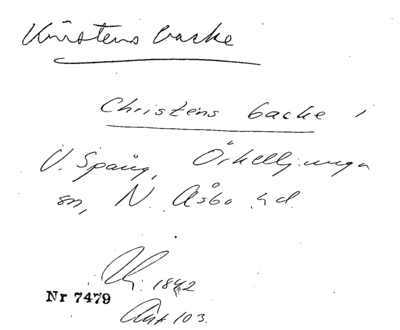 Kirstens backe
Christens backe i
V. Spång, Örkelljunga
sn, N. Åsbo hd.
1842
Nr 7479
Akt 103.